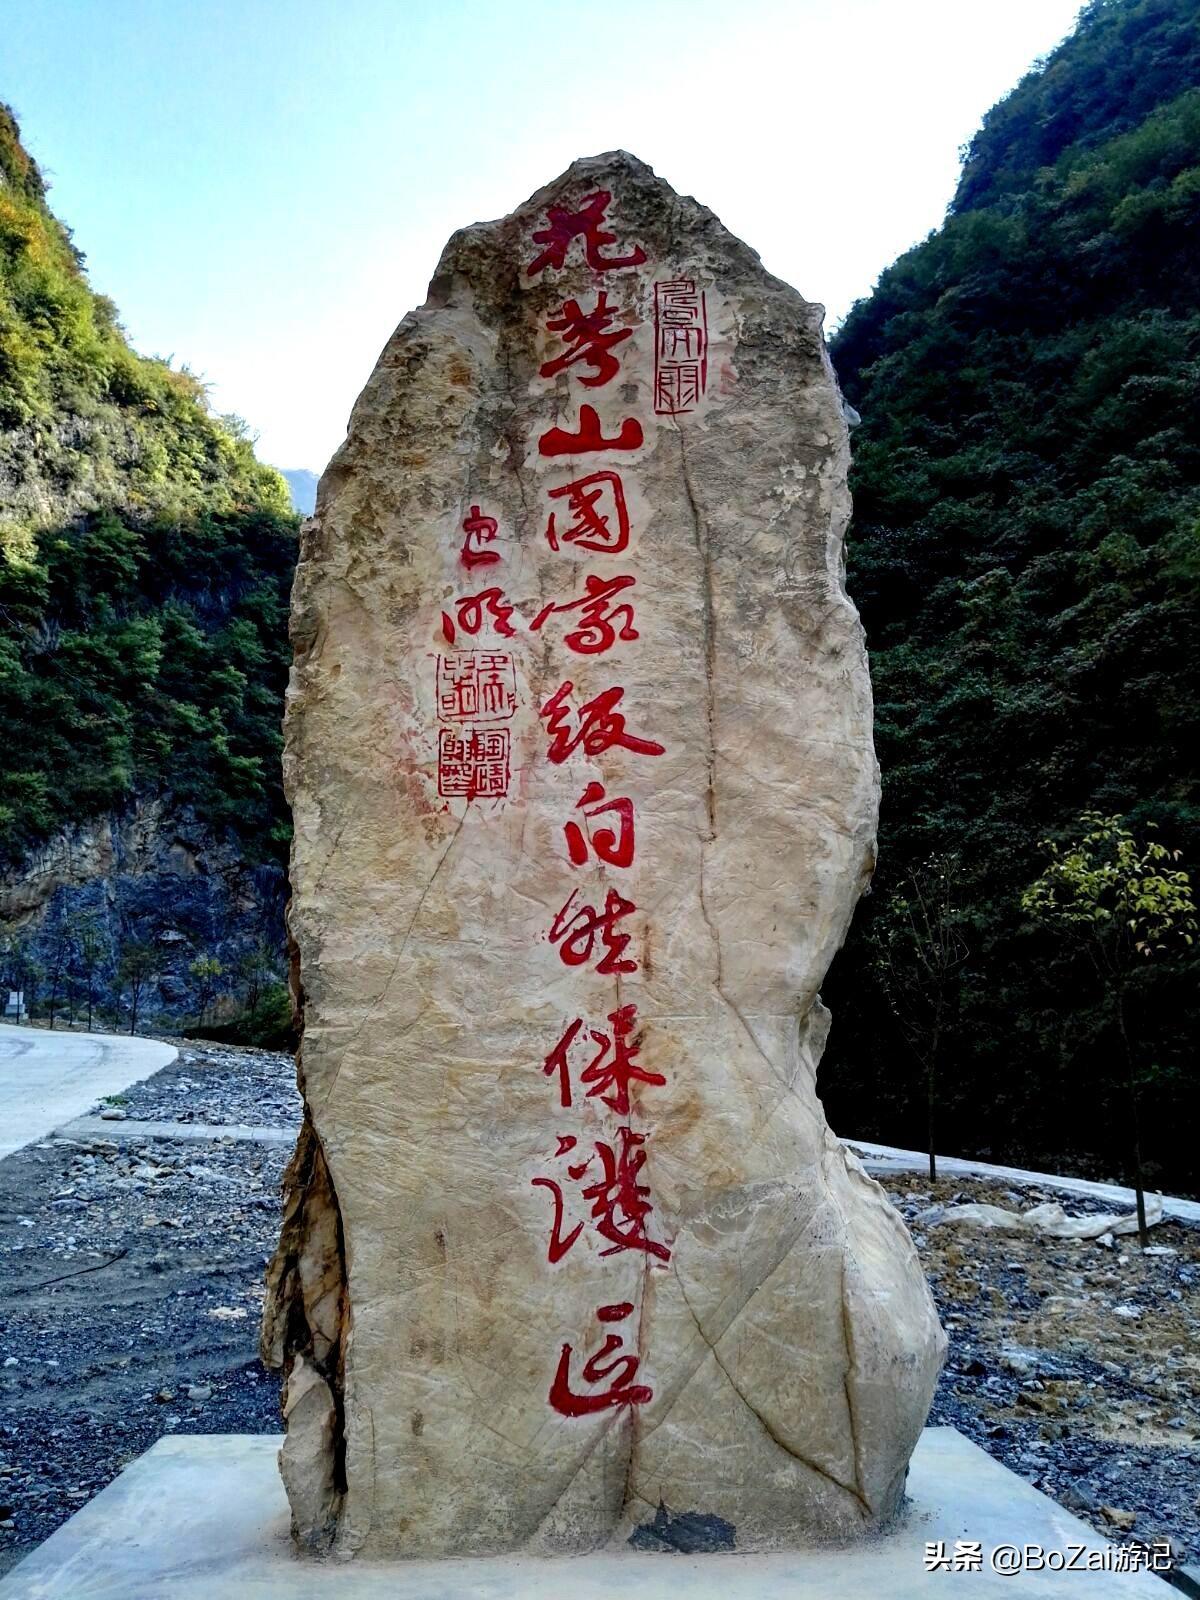 花萼山国家级自然保护区
头条 @BoZai游记